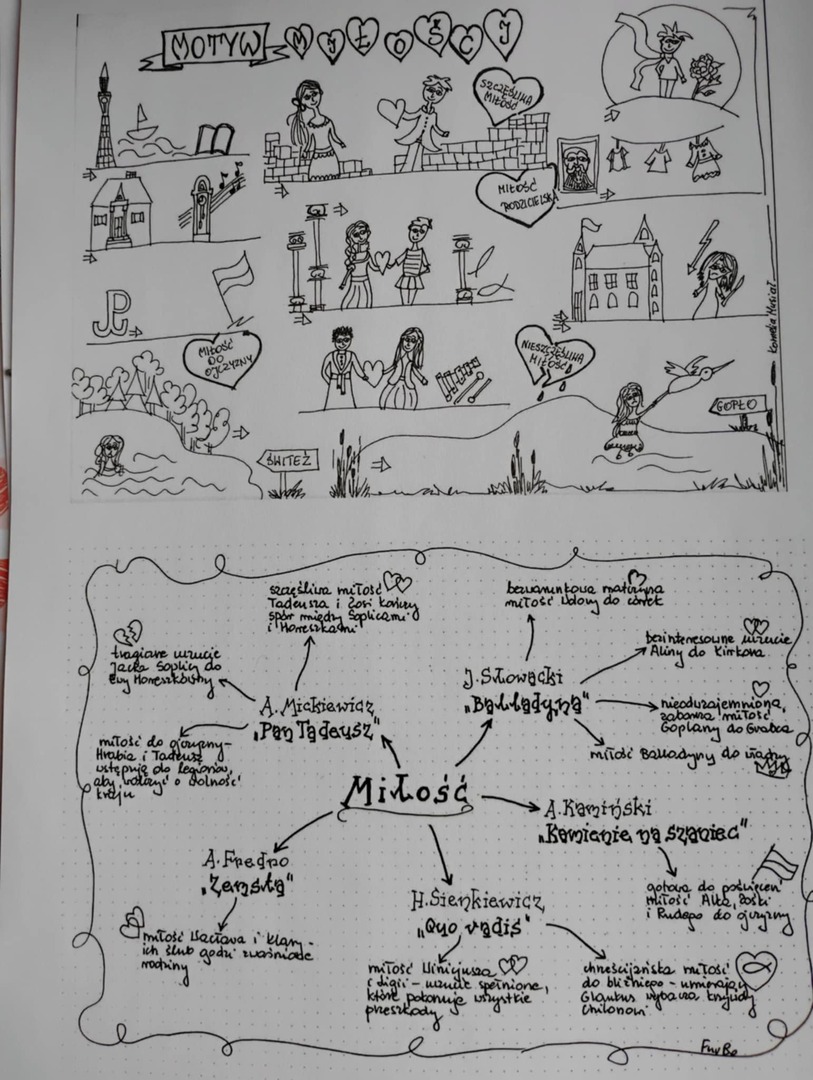 MOTYW MIŁOŚCI
SZCZĘŚLIWA
MIŁOŚĆ
MIŁOŚĆ
RODZICIELSKA
MIŁOŚĆ
DO
OJCZYZNY
NIESZCZĘŚLIWA
MIŁOŚĆ
GOPŁO
ŚWITEŹ
szczęśliwa miłość
Tadeusza i Zosi kończy
spór między Soplicami
i Horeszkami
bezwarunkowa matczyna
miłość Wdowy do córek
tragiczne uczucie
Jacka Soplicy do
Ewy Horeszkówny
bezinteresowne uczucie
Aliny do Kirkora
A. Mickiewicz
"Pan Tadeusz"
J. Słowacki
"Balladyna"
nieodwzajemniona,
zaborcza miłość
Goplany do Grabca
miłość do ojczyzny-
Hrabia i Tadeusz
wstępują do legionów,
aby walczyć o wolność
kraju
miłość Balladyny do władzy
Miłość
A. Kamiński
"Kamienie na szaniec"
A. Fredro
"Zemsta"
gotowa do poświęceń
miłość Alka, Zośki
i Rudego do ojczyzny
H. Sienkiewicz
"Quo vadis"
miłość Wacława i Klary -
ich ślub godzi zwaśnione
rodziny
miłość Winicjusza
i Ligii - uczucie spełnione,
które pokonuje wszystkie
przeszkody
chrześcijańska miłość
do bliźniego - umierający
Glaukus wybacza krzywdy
Chilonowi